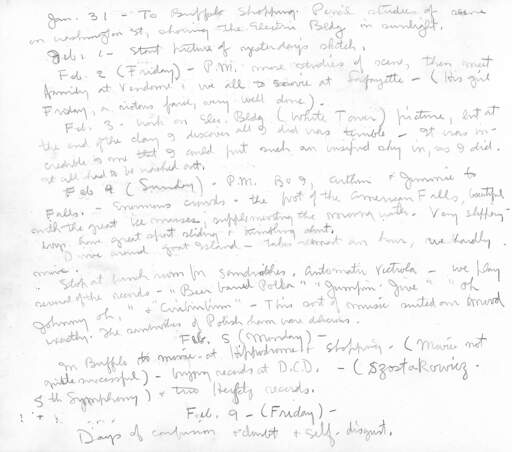 Jan. 31 - To Buffalo shopping. Pencil studies of scene
on Washington St, showing the Electric Bldg in sunlight.
Feb. 1 - Start picture of yesterday's sketch.
Feb. 2 (Friday) - P.M. more studies of scene, then meet
family at Vendome; we all to movie at Lafayette - (His Girl
Friday, a riotous farce, very well done).
Feb. 3 - work on Elec. Bldg (White Tower) picture, but at
the end of the day I discover all I did was terrible - It was in-
credible to me that I could put such an insipid sky in, as I did.
It all had to be washed out.
Feb 4 (Sunday) - P.M. B & I, Arthur & Jimmie to
Falls. - Enormous crowds - the foot of the American Falls, beautiful
with the great ice masses, supplementing the moving water. Very slippery -
boys have great sport sliding & tumbling about.
Drive around Goat Island - takes almost an hour, we hardly
move.
Stop at lunch room for sandwiches. Automatic Victrola - we play
several of the records - "Beer barrel Polka" "Jumpin' Jive" "Oh
Johnny oh," & "Ciribiribin" - This sort of music suited our mood
exactly. The sandwiches of Polish ham were delicious.
Feb. 5 (Monday) -
In Buffalo to movie at Hippodrome & shopping. (Movie not
quite successful) - buying records at D.C.D. - (Szostakowicz.
5th Symphony) & two records.
Feb. 9 - (Friday) -
Days of confusion & doubt & self-disgust.